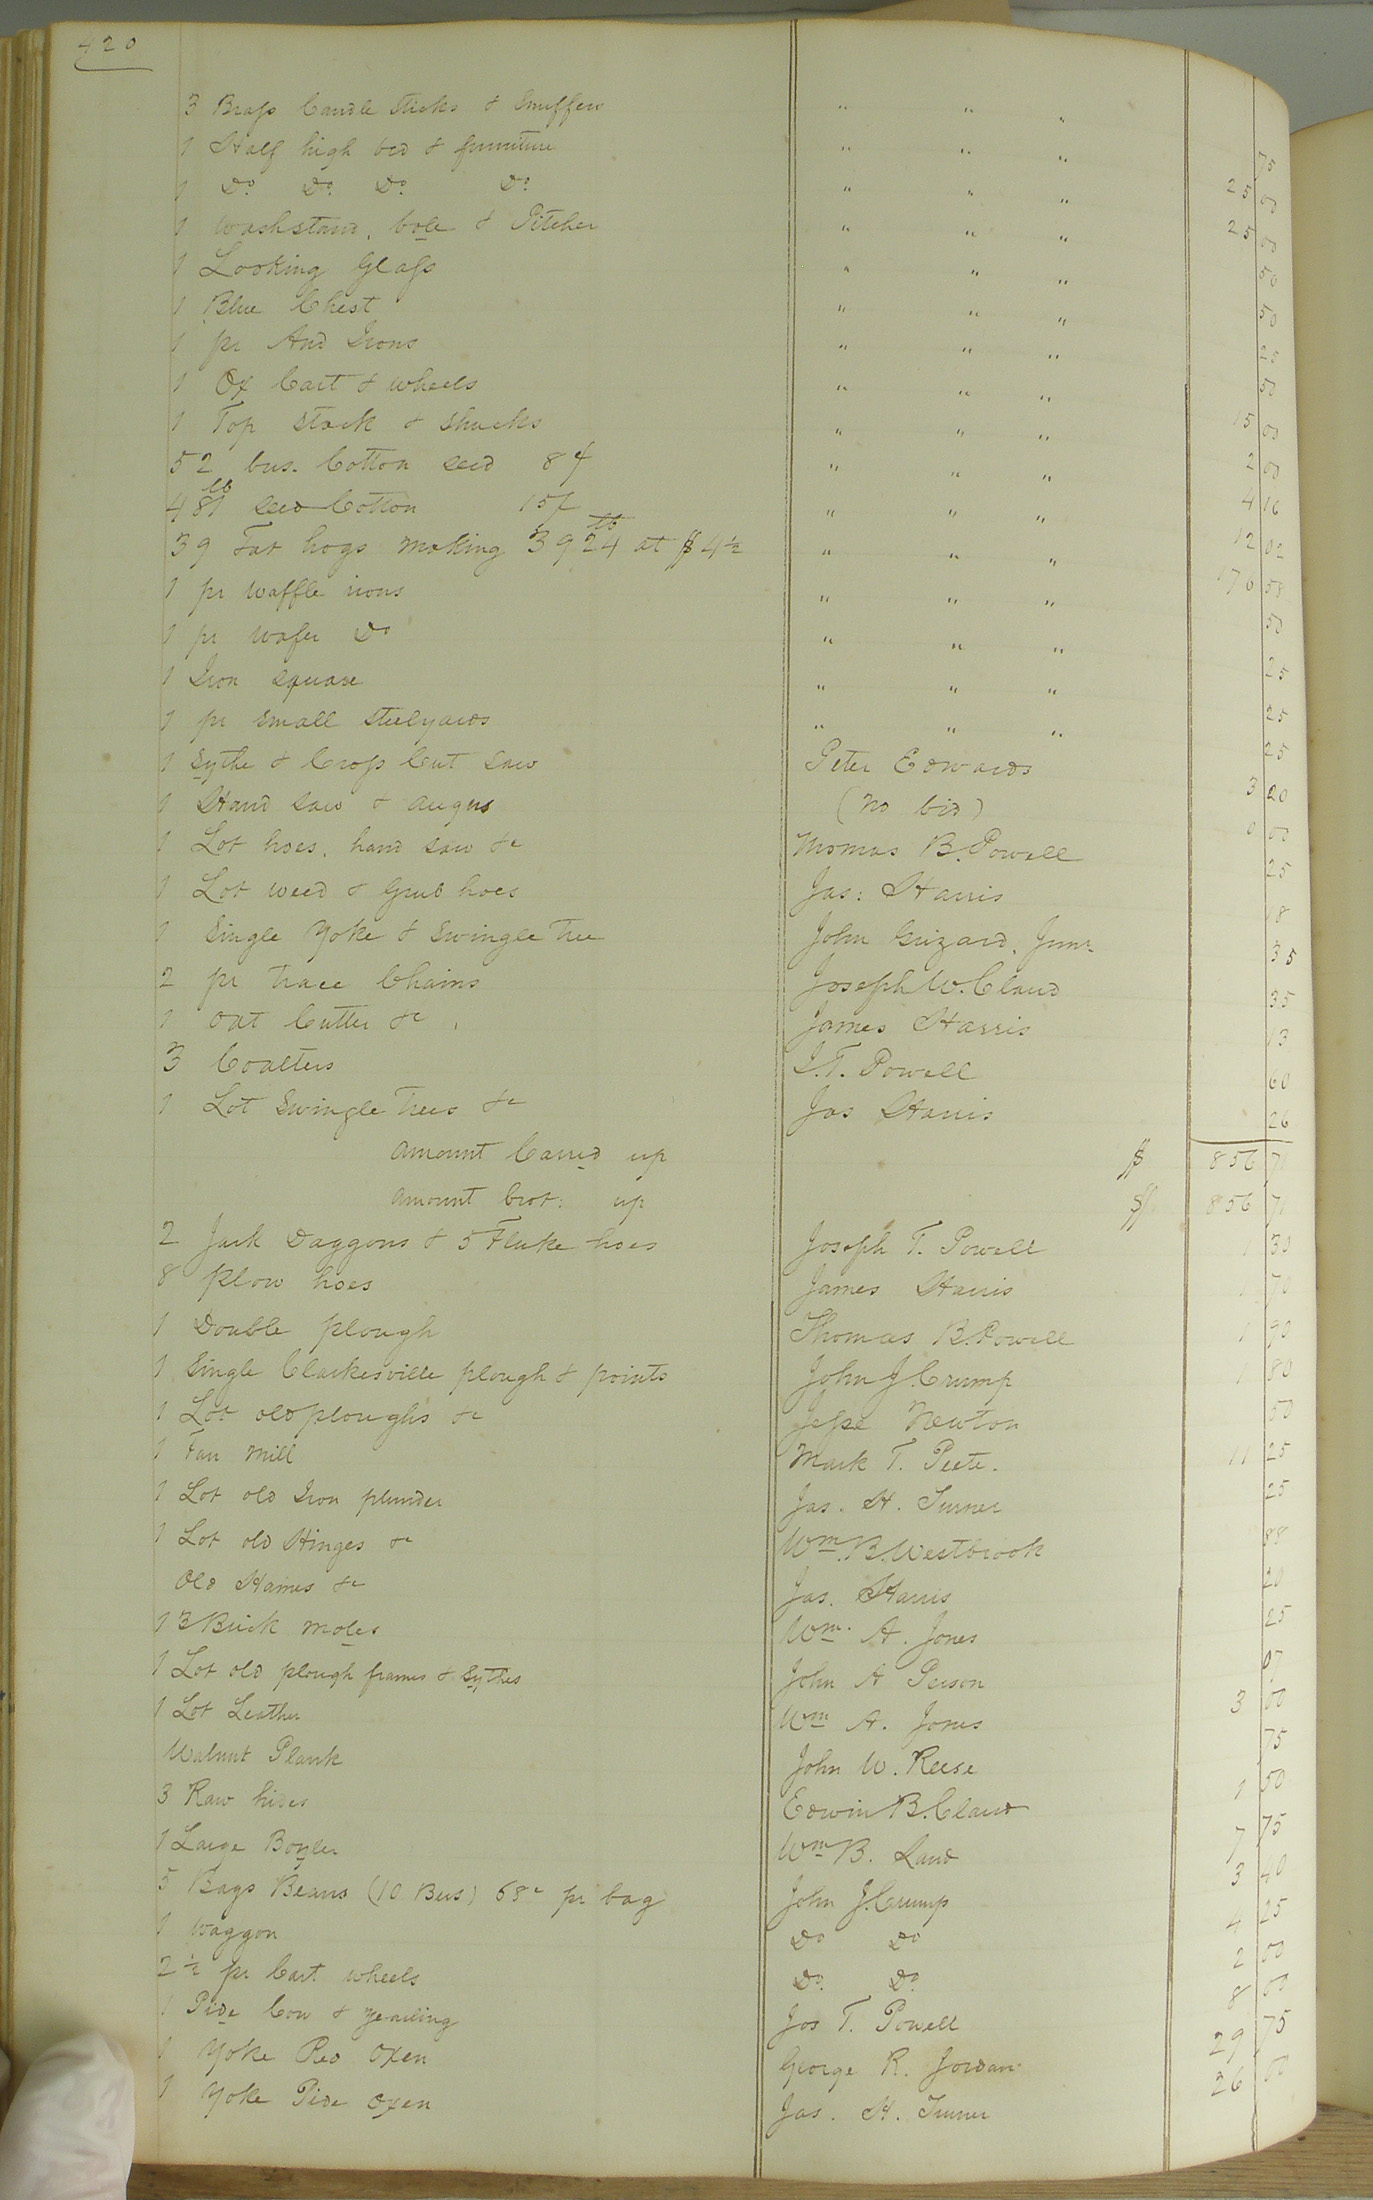 420
3 Brass Candle Sticks & Snuffers " " " 75
1 Half high bed & furniture " " " 25 00
1 Do. Do. Do. Do. " " " 25 00
1 Washstand, bole & Pitcher " " " 50
1 Looking Glass " " " 50
1 Blue Chest " " " 25
1 pr And Irons " " " 50
1 Ox Cart & wheels " " " 15 00
1 Top Stack & Shucks " " " 2 00
52 bus. Cotton seed 8¢ " " " 4 16
481 lb Seed Cotton " " " 12 02
39 Fat hogs making 3924 lb at $4½ " " " 176 58
1 pr Waffle irons " " " 50
1 pr Wafer Do " " " 25
1 Iron Square " " " 25
1 pr Small Steelyards " " " 25
1 Sythe & Cross Cut Saw Peter Edwards 3 20
1 Hand Saw & augers (no bid) 0 00
1 Lot hoes, hand Saw &c Thomas B. Powell 25
1 Lot Weed & Grub hoes Jas: Harris 18
1 Single Yoke & Swingle Tree John Grizard, Junr. 35
2 pr Trace Chains Joseph W. Claud 35
1 Oat Cutter &c. James Harris 13
3 Coalters J. T. Powell 60
1 Lot Swingle Trees &c Jas Harris 26
Amount Carried up $ 856 71
Amount brot: up $ 856 71
2 Jack Daggons & 5 Fluke hoes Joseph T. Powell 1 30
8 plow hoes James Harris 1 70
1 Double plough Thomas B. Powell 1 90
1 Single Clarkesville plough & points John J. Crump 1 80
1 Lot old ploughs &c Jesse Newton 50
1 Fan Mill Mark T. Peete. 11 25
1 Lot old Iron plunder Jas. H. Turner 25
1 Lot old Hinges &c Wm. B. Westbrook 88
Old Hames &c Jas. Harris 20
13 Brick moles Wm. A. Jones 25
1 Lot old plough frames & Sythes John A Person 07
1 Lot Leather Wm A. Jones 3 00
Walnut Plank John W. Reese 75
3 Raw hides Edwin B. Claud 1 50
1 Large Boyler Wm B. Rand 7 75
5 Bags Beans (10 Bus) 68c pr bag John J. Crump 3 40
1 Waggon Do Do 4 25
2½ pr Cart wheels Do. Do. 2 50
1 Pide Cow & Yearling Jos T. Powell 8 00
1 Yoke Red Oxen George R. Jordan 29 75
1 Yoke Pide Oxen Jas. H. Turner 26 00